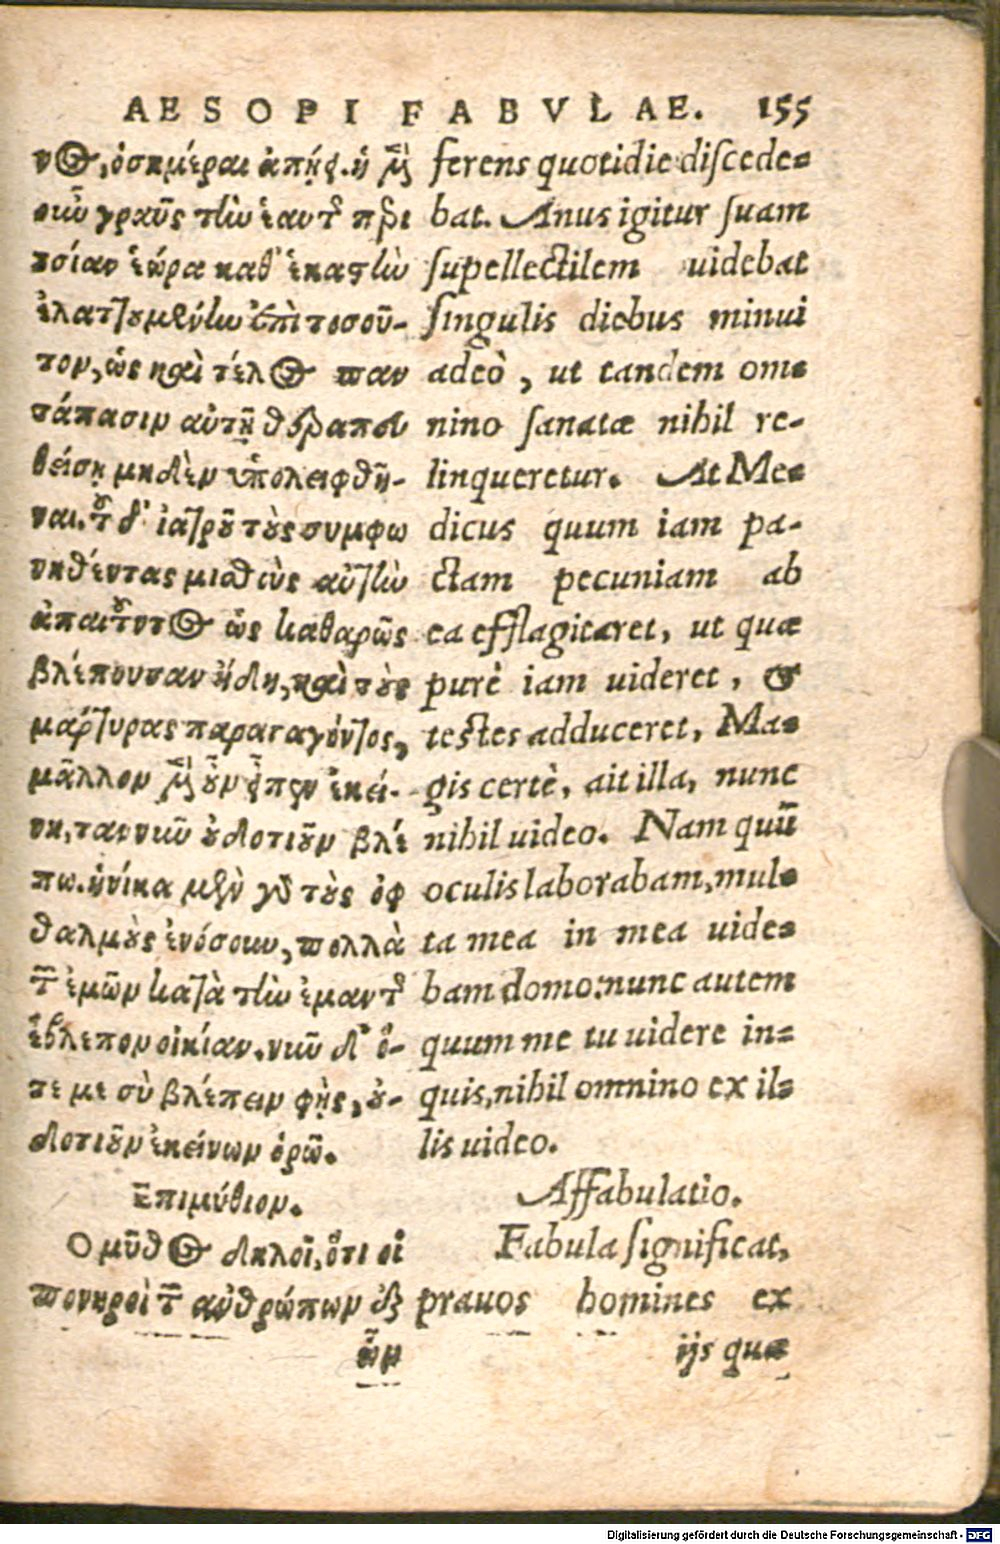 AESOPI FABVLAE. 155
νος, ὁσημέραι ἀπῄει. ἡ μὲν
οὖν γραῦς τὴν ἑαυτῆς περι
ουσίαν ἑώρα καθ' ἑκάστην
ἐλαττουμένην ἐπὶ τοσοῦ-
τον, ὡς καὶ τέλος παν
τάπασιν αὐτῇ θεραπευ
θείσῃ μηδὲν ὑπολειφθῆ-
ναι. τοῦ δ' ἰατροῦ τοὺς συμφω
νηθέντας μισθοὺς αὐτὴν
ἀπαιτοῦντος ὡς καθαρῶς
βλέπουσαν ἤδη, καὶ τοὺς
μάρτυρας παραγαγόντος,
μᾶλλον μὲν οὖν εἶπεν ἐκεί-
νη, τανῦν οὐδοτιοῦν βλέ
πω. ἡνίκα μὲν γὰρ τοὺς ὀφ
θαλμοὺς ἐνόσουν, πολλὰ
τῶν ἐμῶν κατὰ τὴν ἐμαυτῆς
ἔβλεπον οἰκίαν. νῦν δ' ὅ-
τε με σὺ βλέπειν φῄς, οὐ-
δοτιοῦν ἐκείνων ὁρῶ.
Επιμύθιον.
Ο μῦθος δηλοῖ, ὅτι οἱ
πονηροὶ τῶν ἀνθρώπων ἐξ
ὧν
ferens quotidie discede=
bat. Anus igitur suam
supellectilem uidebat
singulis diebus minui
adeò, ut tandem om=
nino sanatæ nihil re-
linqueretur. At Me=
dicus quum iam pa-
ctam pecuniam ab
ea efflagitaret, ut quæ
purè iam uideret, &
testes adduceret, Ma=
gis certè, ait illa, nunc
nihil uideo. Nam quū
oculis laborabam, mul=
ta mea in mea uide=
bam domo: nunc autem
quum me tu uidere in=
quis, nihil omnino ex il=
lis uideo.
Affabulatio.
Fabula significat,
prauos homines ex
ijs quæ
Digitalisierung gefördert durch die Deutsche Forschungsgemeinschaft - DFG